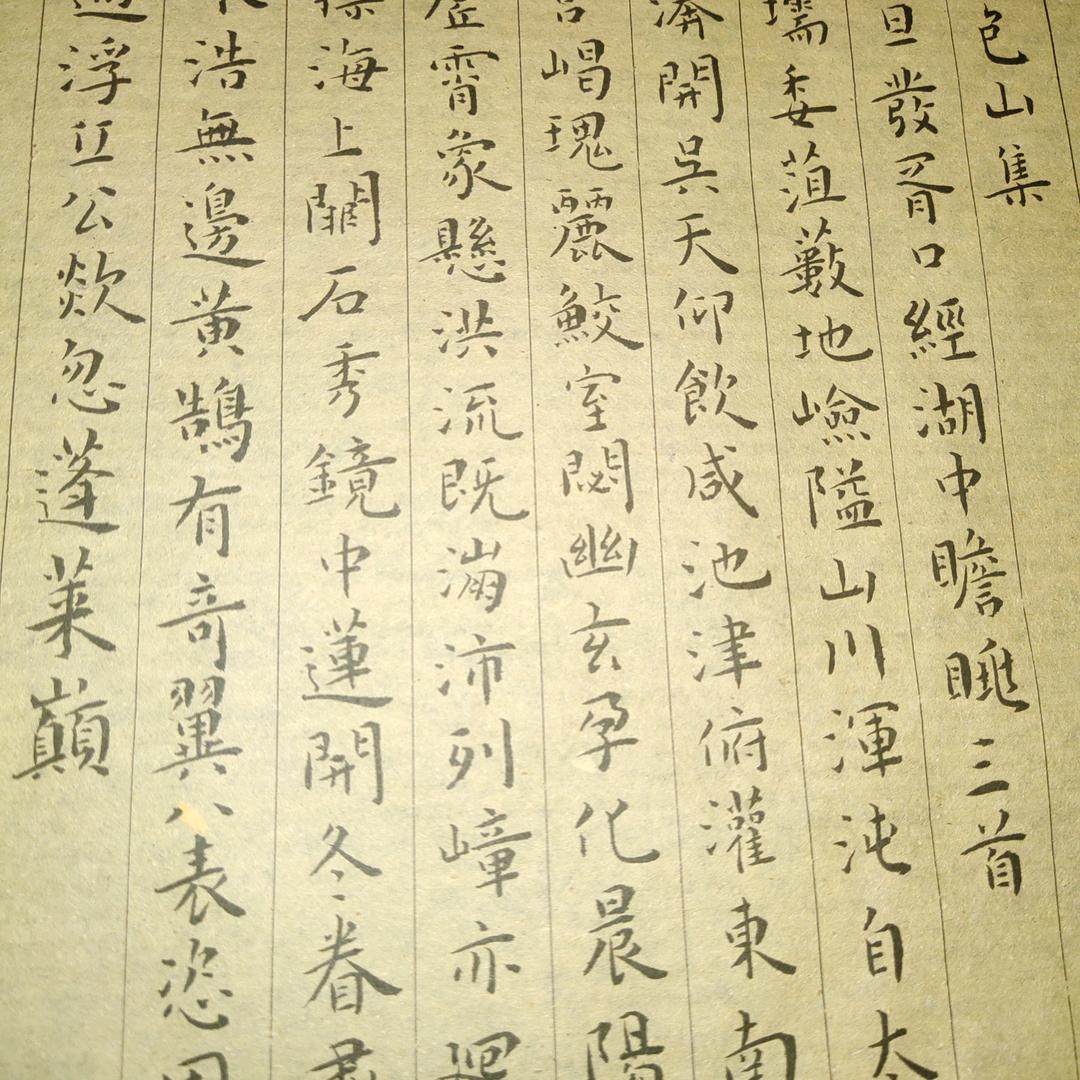 色山集
旦發胥口經湖中瞻眺三首
壖委菹藪地嶮隘山川渾沌自太
濟開吳天仰飲咸池津俯灌東南
唱瑰麗鮫室閟幽玄孕化晨陽
霄象懸洪流既滿沛列嶂亦迴
海上關石秀鏡中蓮開冬眷
浩無邊黃鵠有奇翼八表恣
浮丘公欻忽蓬萊巔